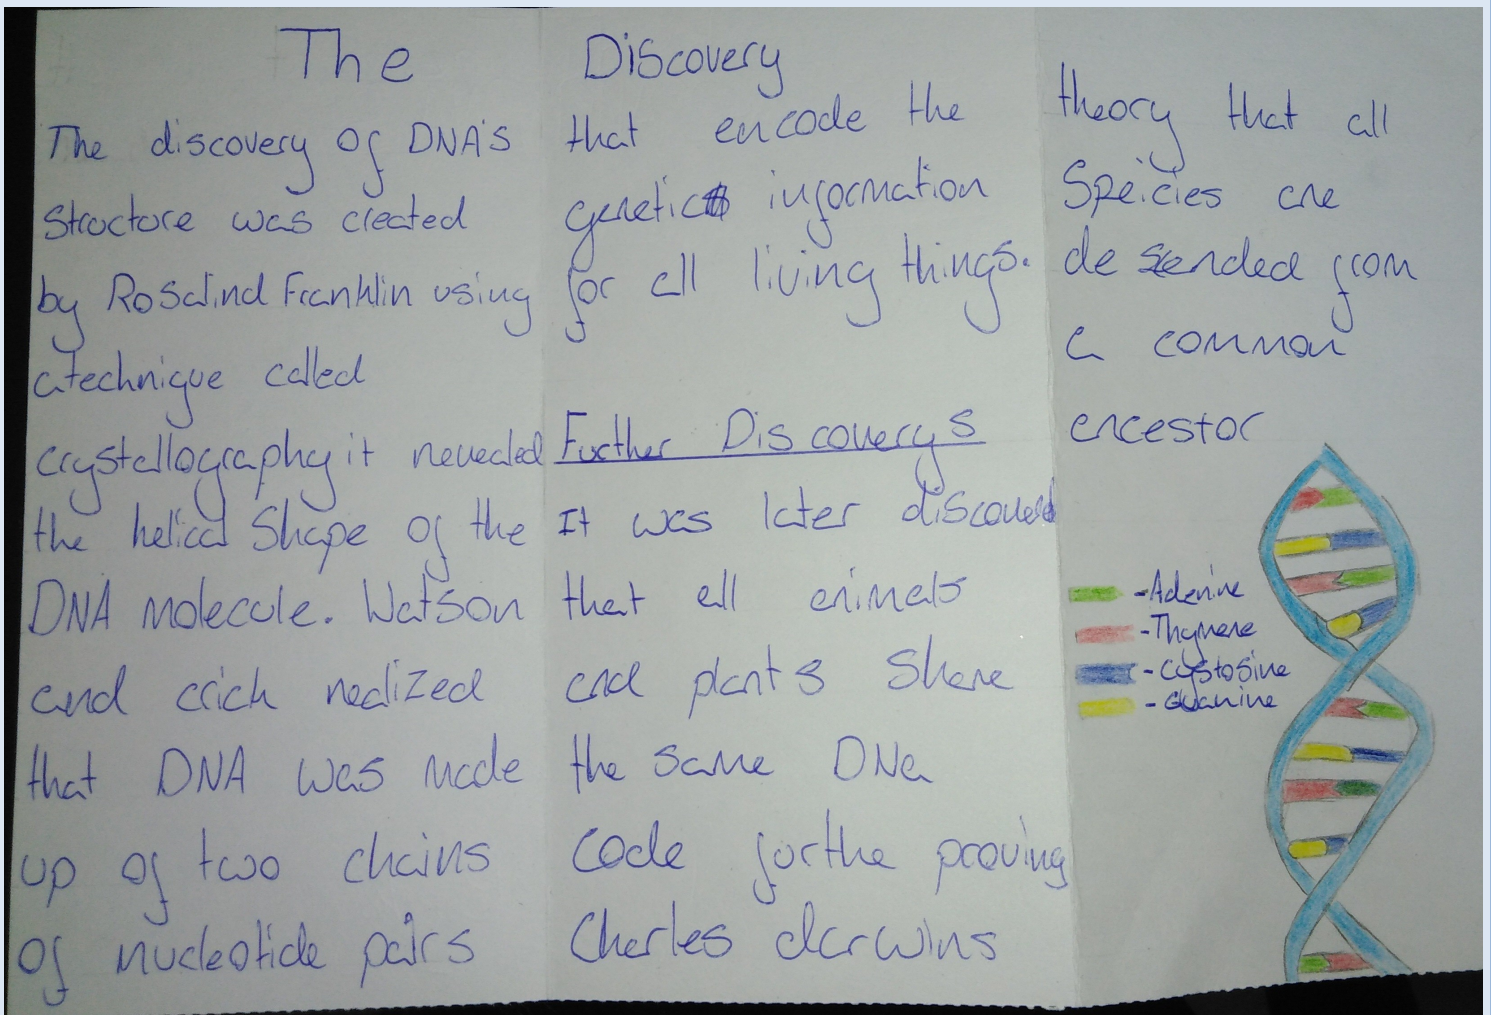 The Discovery
The discovery of DNA's
Structure was created
by Rosalind Franklin using
a technique called
crystallography it revealed
the helical Shape of the
DNA molecule. Watson
and crick realized
that DNA was made
up of two chains
of nucleotide pairs
that encode the
genetic information
for all living things.
Further Discoverys
It was later discovered
that all animals
and plants share
the same DNa
code furthe proving
Charles darwins
theory that all
Speicies are
desended from
a common
ancestor
-Adenine
-Thymene
-Cystosine
-Guanine